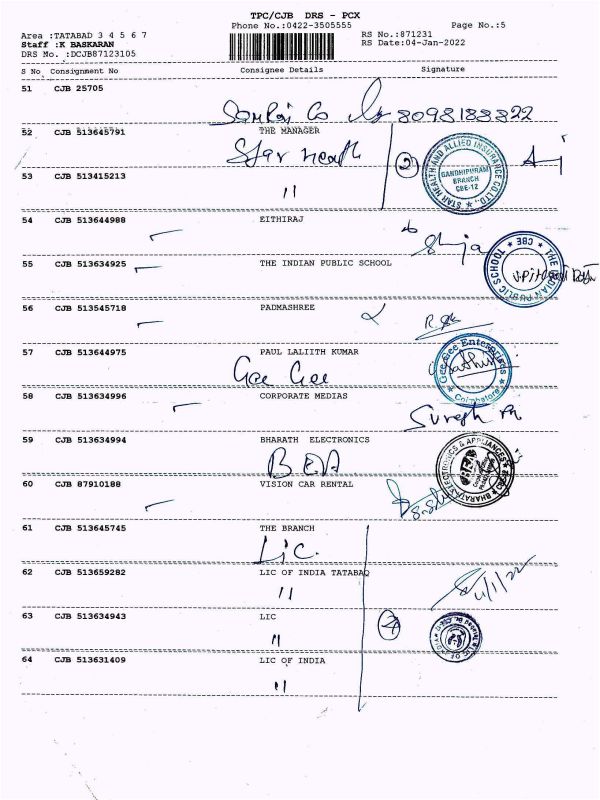 TPC/CJB DRS - PCX
Phone No.:0422-3505555 Page No.:5
Area :TATABAD 3 4 5 6 7 RS No.:871231
Staff :K BASKARAN RS Date:04-Jan-2022
DRS No. :DCJB87123105
S No Consignment No Consignee Details Signature
51 CJB 25705
Co 8098188822
52 CJB 513645791 THE MANAGER
Star Heath 2
STAR HEALTH AND ALLIED INSURANCE CO.LTD.,
GANDHIPURAM
BRANCH
CBE-12
53 CJB 513415213
"
54 CJB 513644988 EITHIRAJ
55 CJB 513634925 THE INDIAN PUBLIC SCHOOL
THE INDIAN PUBLIC SCHOOL CBE
56 CJB 513545718 PADMASHREE
57 CJB 513644975 PAUL LALIITH KUMAR
Gee Gee
Gee Gee Enterprises
Coimbatore
58 CJB 513634996 CORPORATE MEDIAS
Suresh
59 CJB 513634994 BHARATH ELECTRONICS
BEA
BHARATH ELECTRONICS & APPLIANCES
60 CJB 87910188 VISION CAR RENTAL
61 CJB 513645745 THE BRANCH
Lic.
62 CJB 513659282 LIC OF INDIA TATABAD
" 4/1/22
63 CJB 513634943 LIC
" 4
64 CJB 513631409 LIC OF INDIA
"